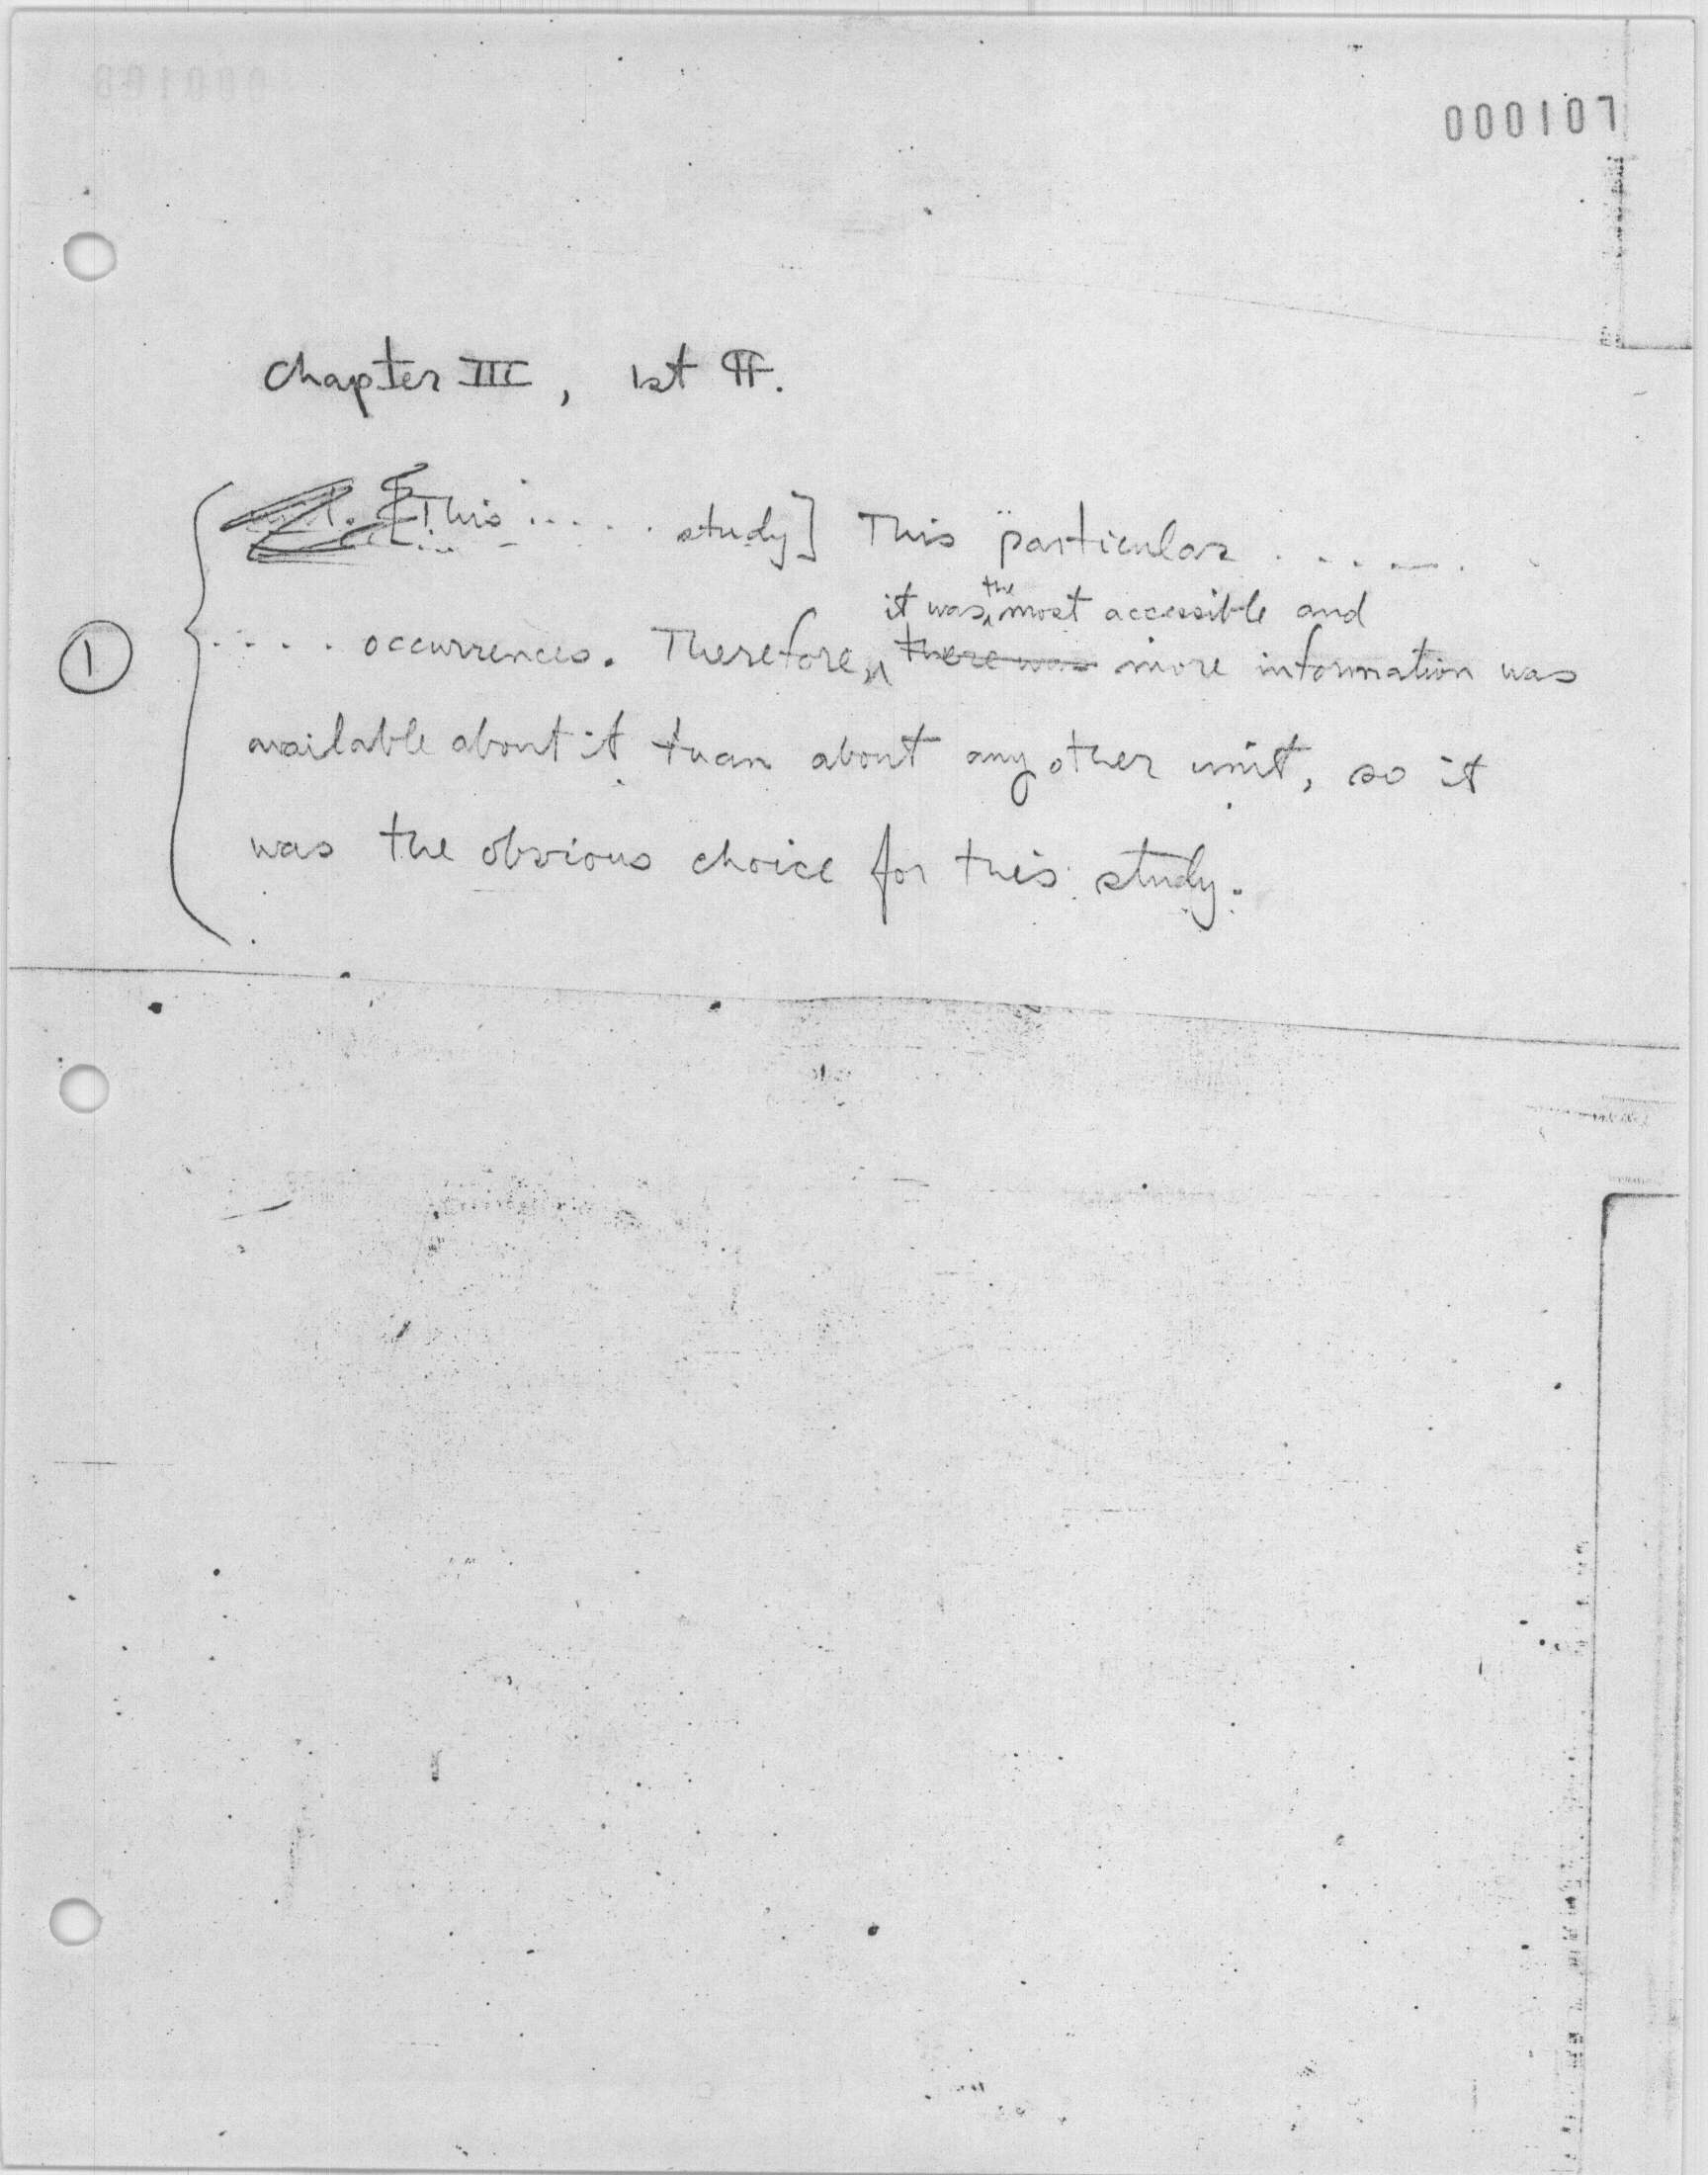 000107
Chapter III, 1st ¶.
[This ..... study] This particular .....
it was the most accessible and
1 ..... occurrences. Therefore, there was more information was
available about it than about any other unit, so it
was the obvious choice for this study.